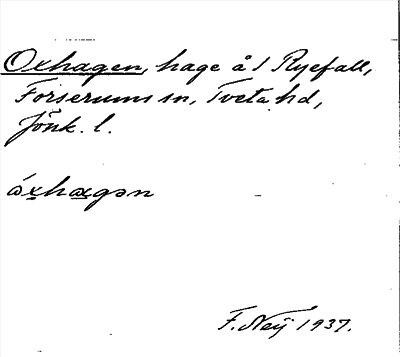 Oxhagen, hage å 1 Ryefall,
Forserums sn, Tveta hd,
Jönk. l.
óxhagən
F. Neij 1937.